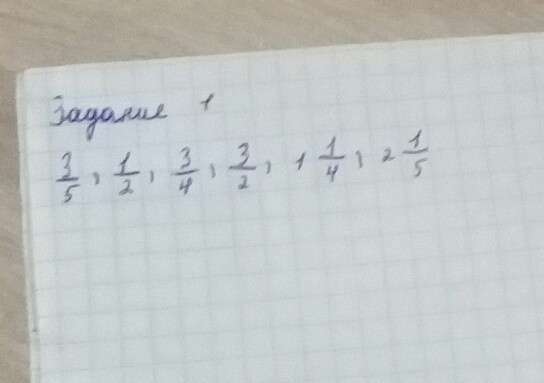 Задание 1
3/5, 1/2, 3/4, 3/2, 1 1/4, 2 1/5